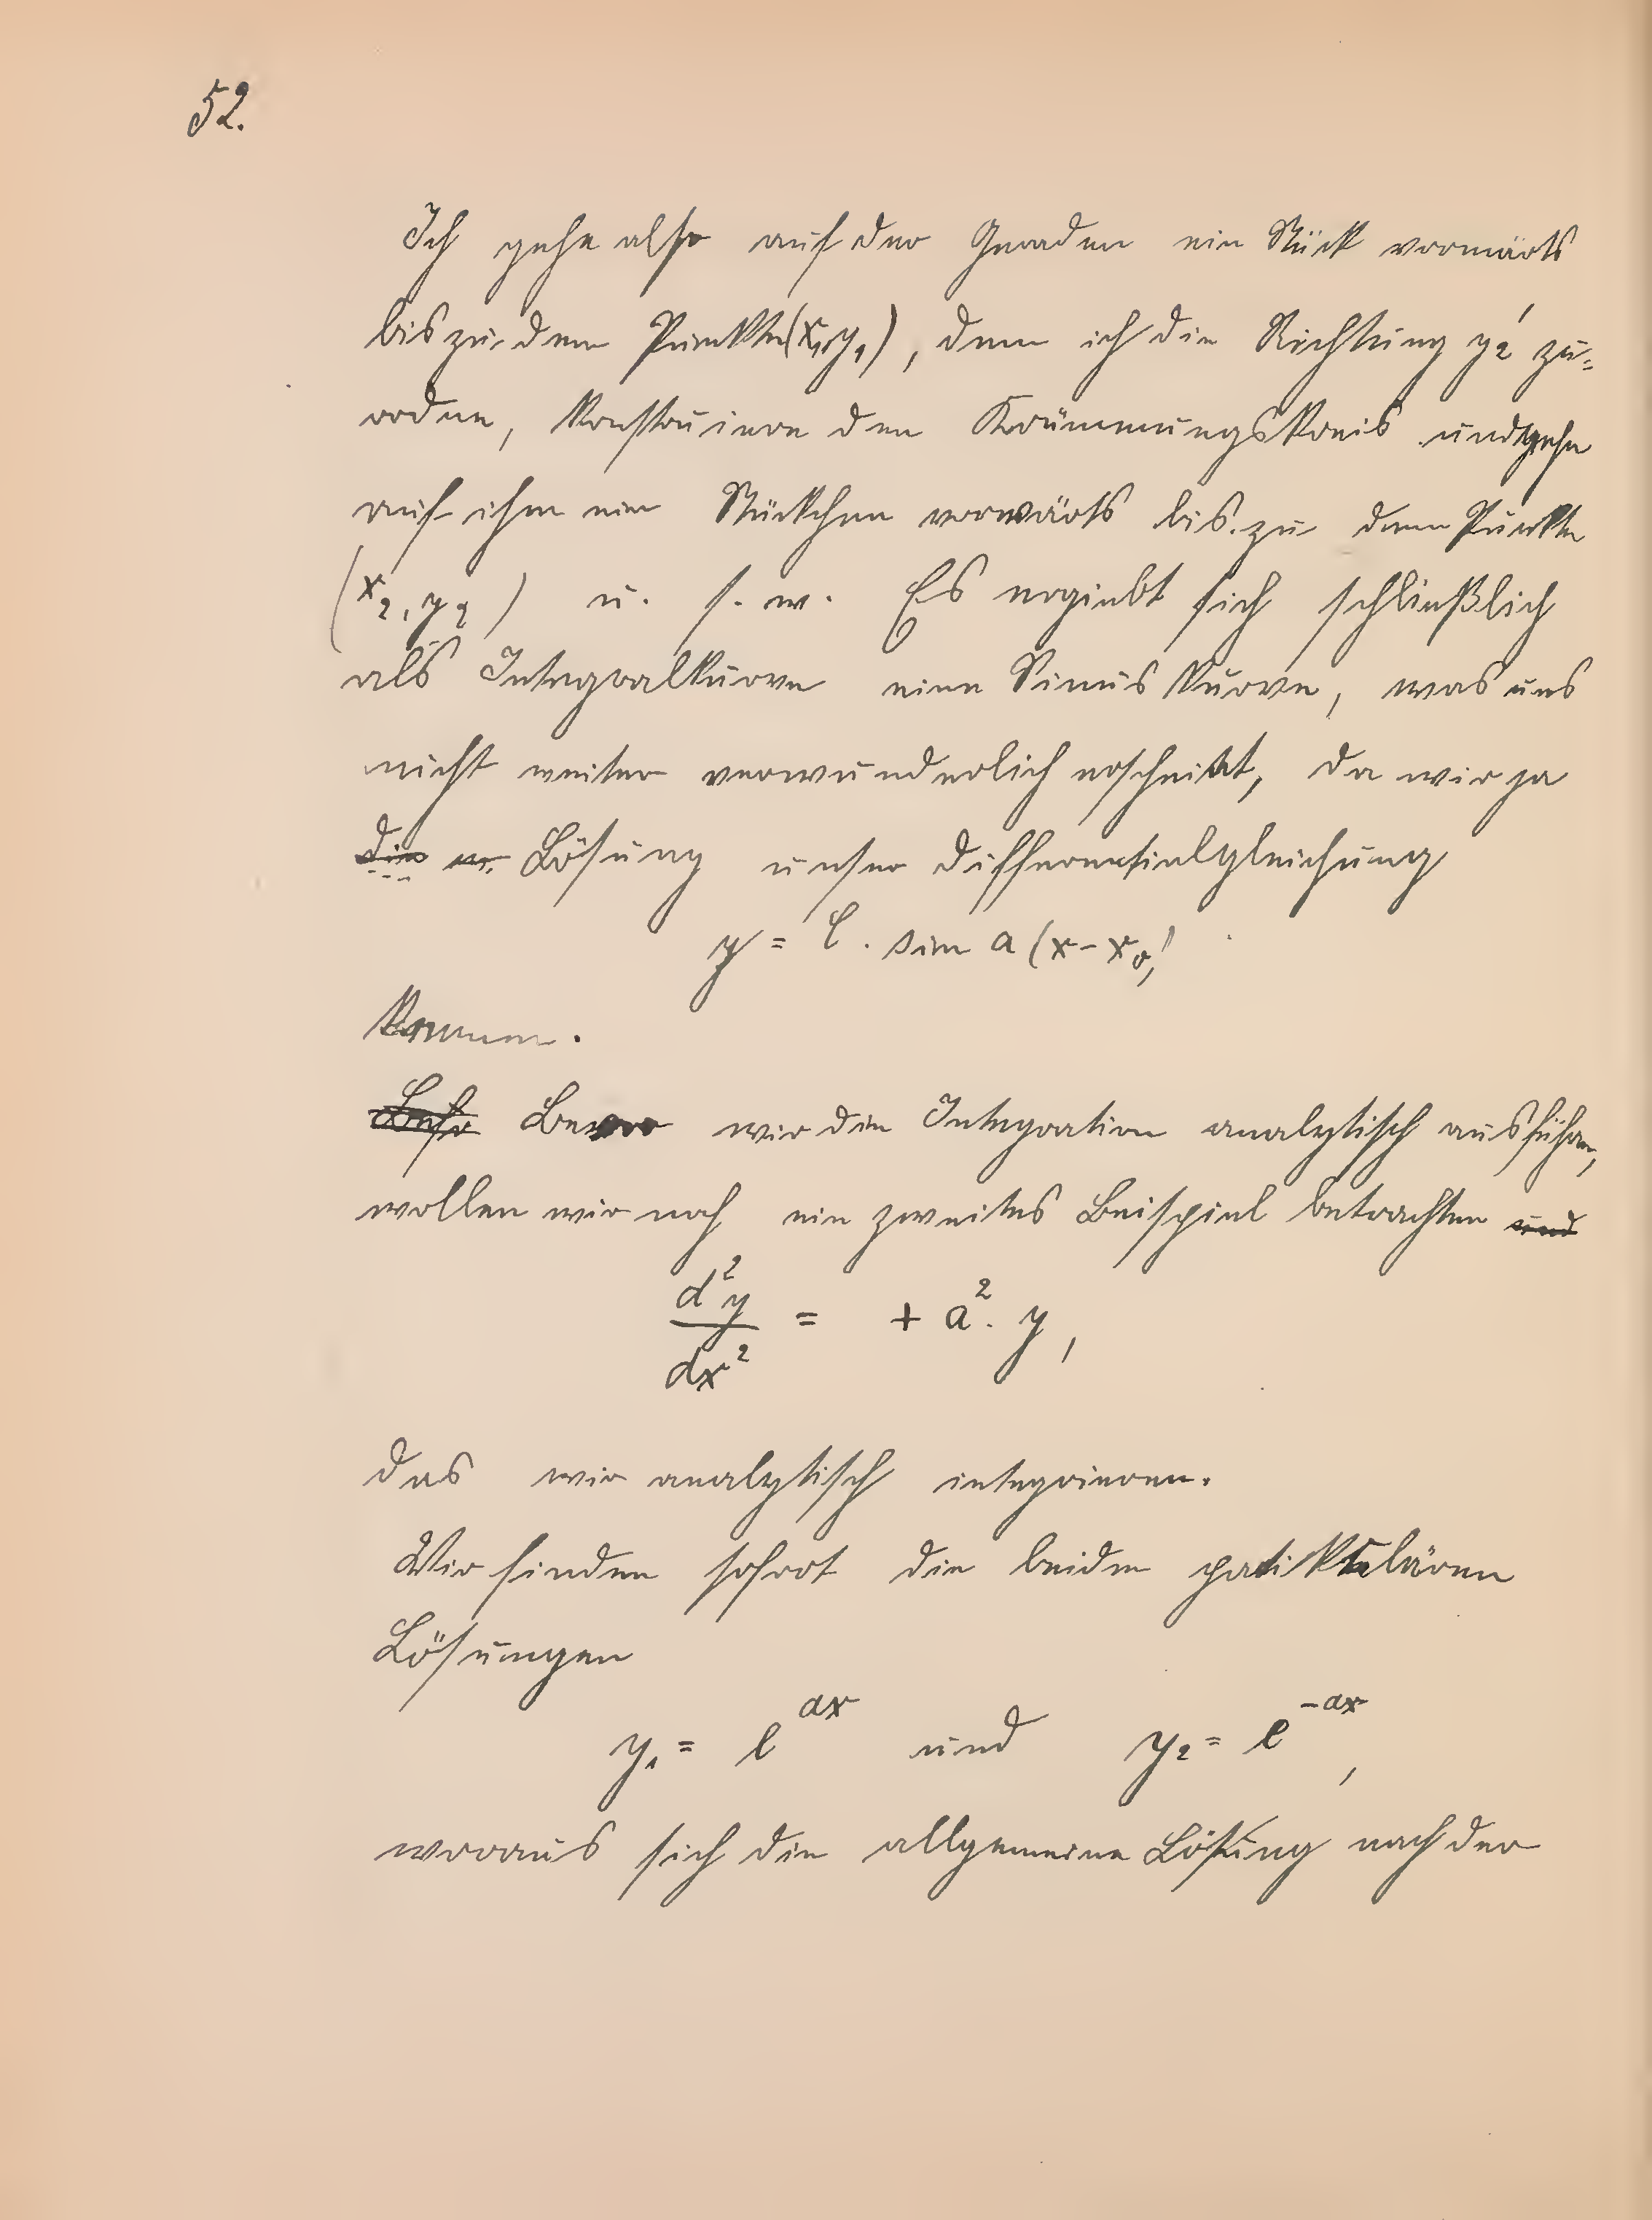 52.
Ich gehe also auf der Geraden ein Stück vorwärts
bis zu dem Punkte (x₁, y₁), dem ich die Richtung y₂' zu=
ordne, konstruiere den Krümmungskreis und gehe
auf ihm ein Stückchen vorwärts bis zu dem Punkte
(x₂, y₂) u. s. w. Es ergiebt sich schließlich
als Integralkurve eine Sinuskurve, was uns
nicht weiter verwunderlich erscheint, da wir ja
die Lösung unser Differentialgleichung
y = C · sin a (x - x₀)
kennen.
Bevor wir die Integration analytisch ausführen,
wollen wir noch ein zweites Beispiel betrachten und
d²y/dx² = + a² · y,
das wir analytisch integrieren.
Wir finden sofort die beiden partikulären
Lösungen
y₁ = e^{ax} und y₂ = e^{-ax},
woraus sich die allgemeine Lösung nach der